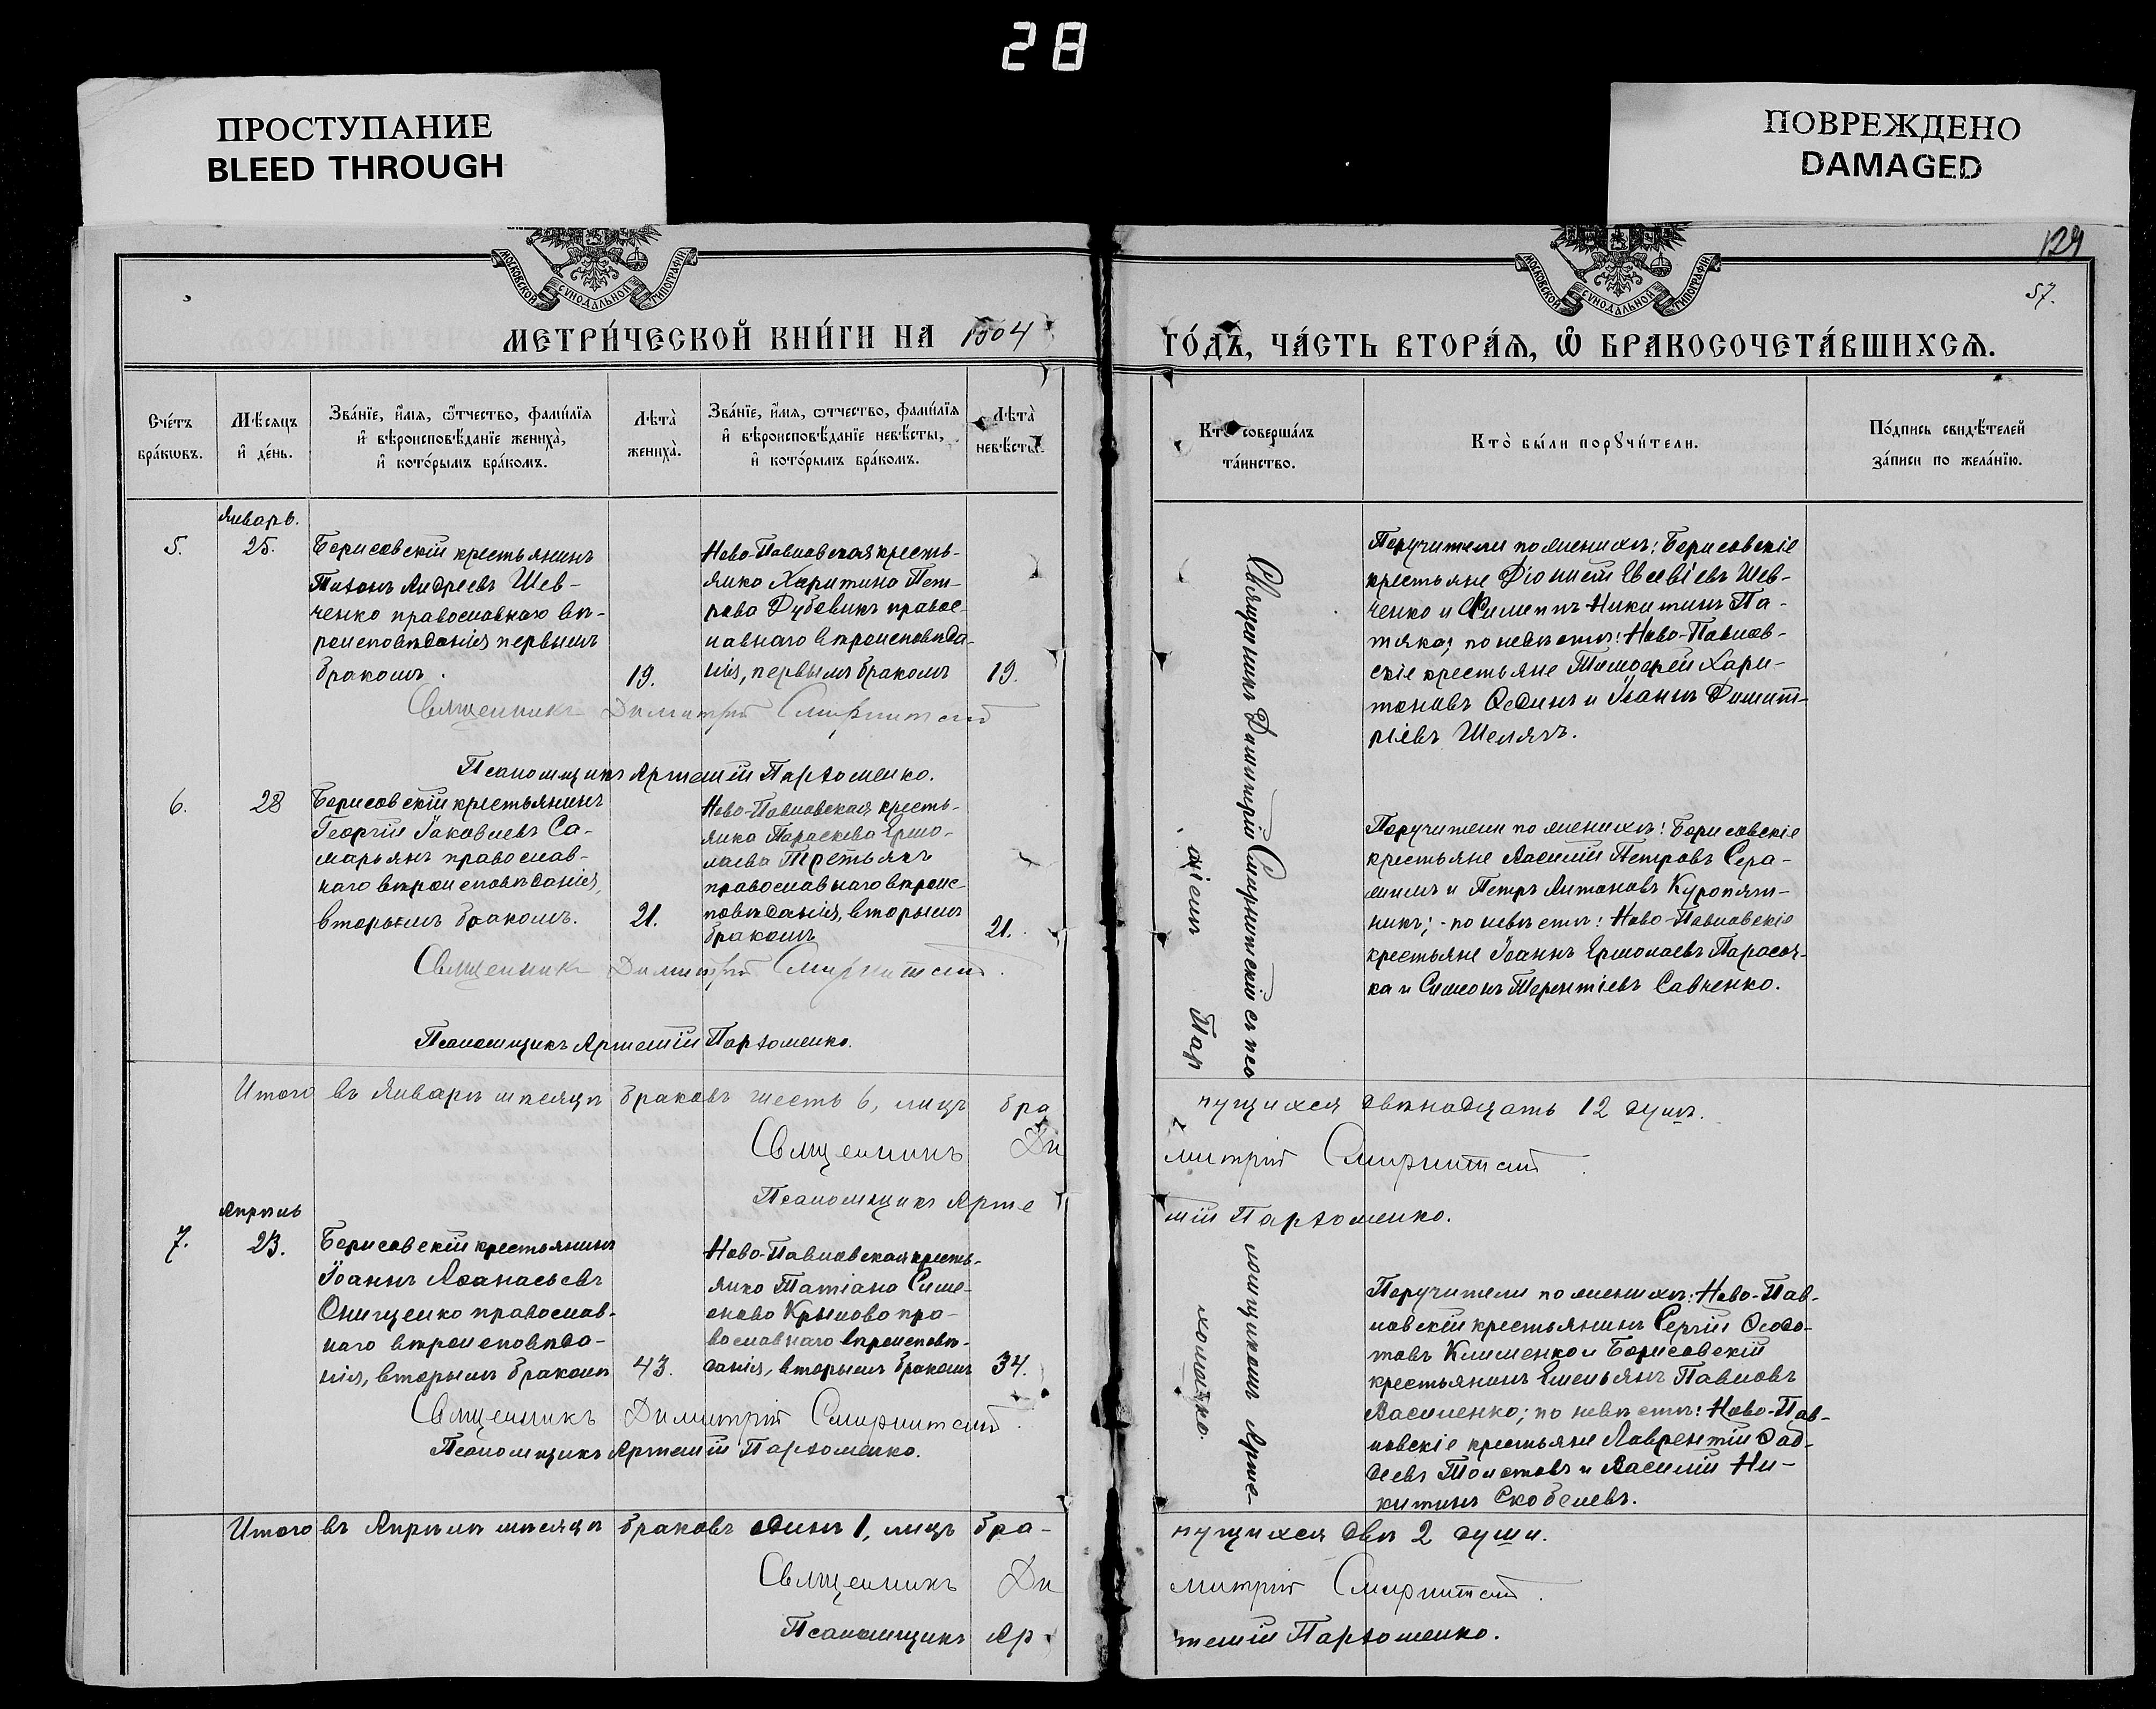 28
ПРОСТУПАНИЕ
BLEED THROUGH
ПОВРЕЖДЕНО
DAMAGED
МОСКОВСКОЙ СѴНОДАЛЬНОЙ ТИПОГРАФІИ
МОСКОВСКОЙ СѴНОДАЛЬНОЙ ТИПОГРАФІИ
57.
МЕТРИ́ЧЕСКОЙ КНИ́ГИ НА 1904
ГО́ДЪ, ЧА́СТЬ ВТОРА́Ѧ, Ѽ БРАКОСОЧЕТА́ВШИХСѦ.
Сче́тъ
бра́кѡвъ.
Мѣ́сяцъ
и҆ де́нь.
Зва́нїе, и҆́мѧ, ѻ҆́тчество, фами́лїѧ
и҆ вѣроисповѣ́данїе жениха̀,
и҆ кото́рымъ бра́комъ.
Лѣта̀
жениха̀.
Зва́нїе, и҆́мѧ, ѻтчество, фами́лїѧ
и҆ вѣроисповѣ́данїе невѣ́сты,
и҆ кото́рымъ бра́комъ.
Лѣта̀
невѣ́сты.
Кто̀ соверша́лъ
та́инство.
Кто̀ бы́ли порꙋчи́тели.
По́дпись свидѣ́телей
за́писи по жела́нїю.
Январь.
5. 25.
Борисовскій крестьянинъ
Тихонъ Андреевъ Шев-
ченко православнаго вѣ-
роисповѣданія первымъ
бракомъ.
19.
Ново-Павловская кресть-
янка Харитина Пет-
рова Дубовикъ правос-
лавнаго вѣроисповѣда-
нія, первымъ бракомъ
19.
Священникъ Димитрій
Псаломщикъ Артемій Пархоменко.
Поручители по женихѣ: Борисовскіе
крестьяне Діонисій Евсевіевъ Шев-
ченко и Филиппъ Никитинъ Па-
тяка; по невѣстѣ: Ново-Павлов-
скіе крестьяне Тимофей Хари-
тоновъ и Іоаннъ Димит-
ріевъ
6. 28
Борисовскій крестьянинъ
Георгій Іаковлевъ Са-
марьянъ православ-
наго вѣроисповѣданія,
вторымъ бракомъ.
21.
Ново-Павловская кресть-
янка Параскева Ермо-
лаева Третьякъ
православнаго вѣроис-
повѣданія, вторымъ
бракомъ
21.
Священникъ Димитрій
Псаломщикъ Артемій Пархоменко.
Поручители по женихѣ: Борисовскіе
крестьяне Василій Петровъ Сера-
и Петръ Антоновъ Куропят-
никъ; - по невѣстѣ: Ново-Павловскіе
крестьяне Іоаннъ Ермолаевъ Парасоч-
ка и Симеонъ Терентіевъ Савченко.
Священникъ Димитрій с псо
міемъ Пар
Итого въ Январѣ мѣсяцѣ браковъ шесть 6, лицъ бра
чущихся двѣнадцать 12 душъ.
Священникъ Ди
митрій
Псаломщикъ Арте
мій Пархоменко.
Апрѣль
7. 23.
Борисовскій крестьянинъ
Іоаннъ Аѳанасьевъ
Онищенко православ-
наго вѣроисповѣда-
нія, вторымъ бракомъ
43.
Ново-Павловская кресть-
янка Татіана Симе-
онова Крылова пра-
вославнаго вѣроисповѣ-
данія, вторымъ бракомъ
34.
Священникъ Димитрій
Псаломщикъ Артемій Пархоменко.
ломщикомъ Арте-
хоменко.
Поручители по женихѣ: Ново-Пав-
ловскій крестьянинъ Сергій Ѳеодо-
товъ Клименко и Борисовскій
крестьянинъ Емельянъ Павловъ
Василенко; по невѣстѣ: Ново-Пав-
ловскіе крестьяне Лаврентій Ѳад-
деевъ Толстовъ и Василій Ни-
китинъ Скобелевъ.
Итого въ Апрѣлѣ мѣсяцѣ браковъ одинъ 1, лицъ бра-
чущихся двѣ 2 души.
Священникъ Ди
митрій
Псаломщикъ Ар
темій Пархоменко.